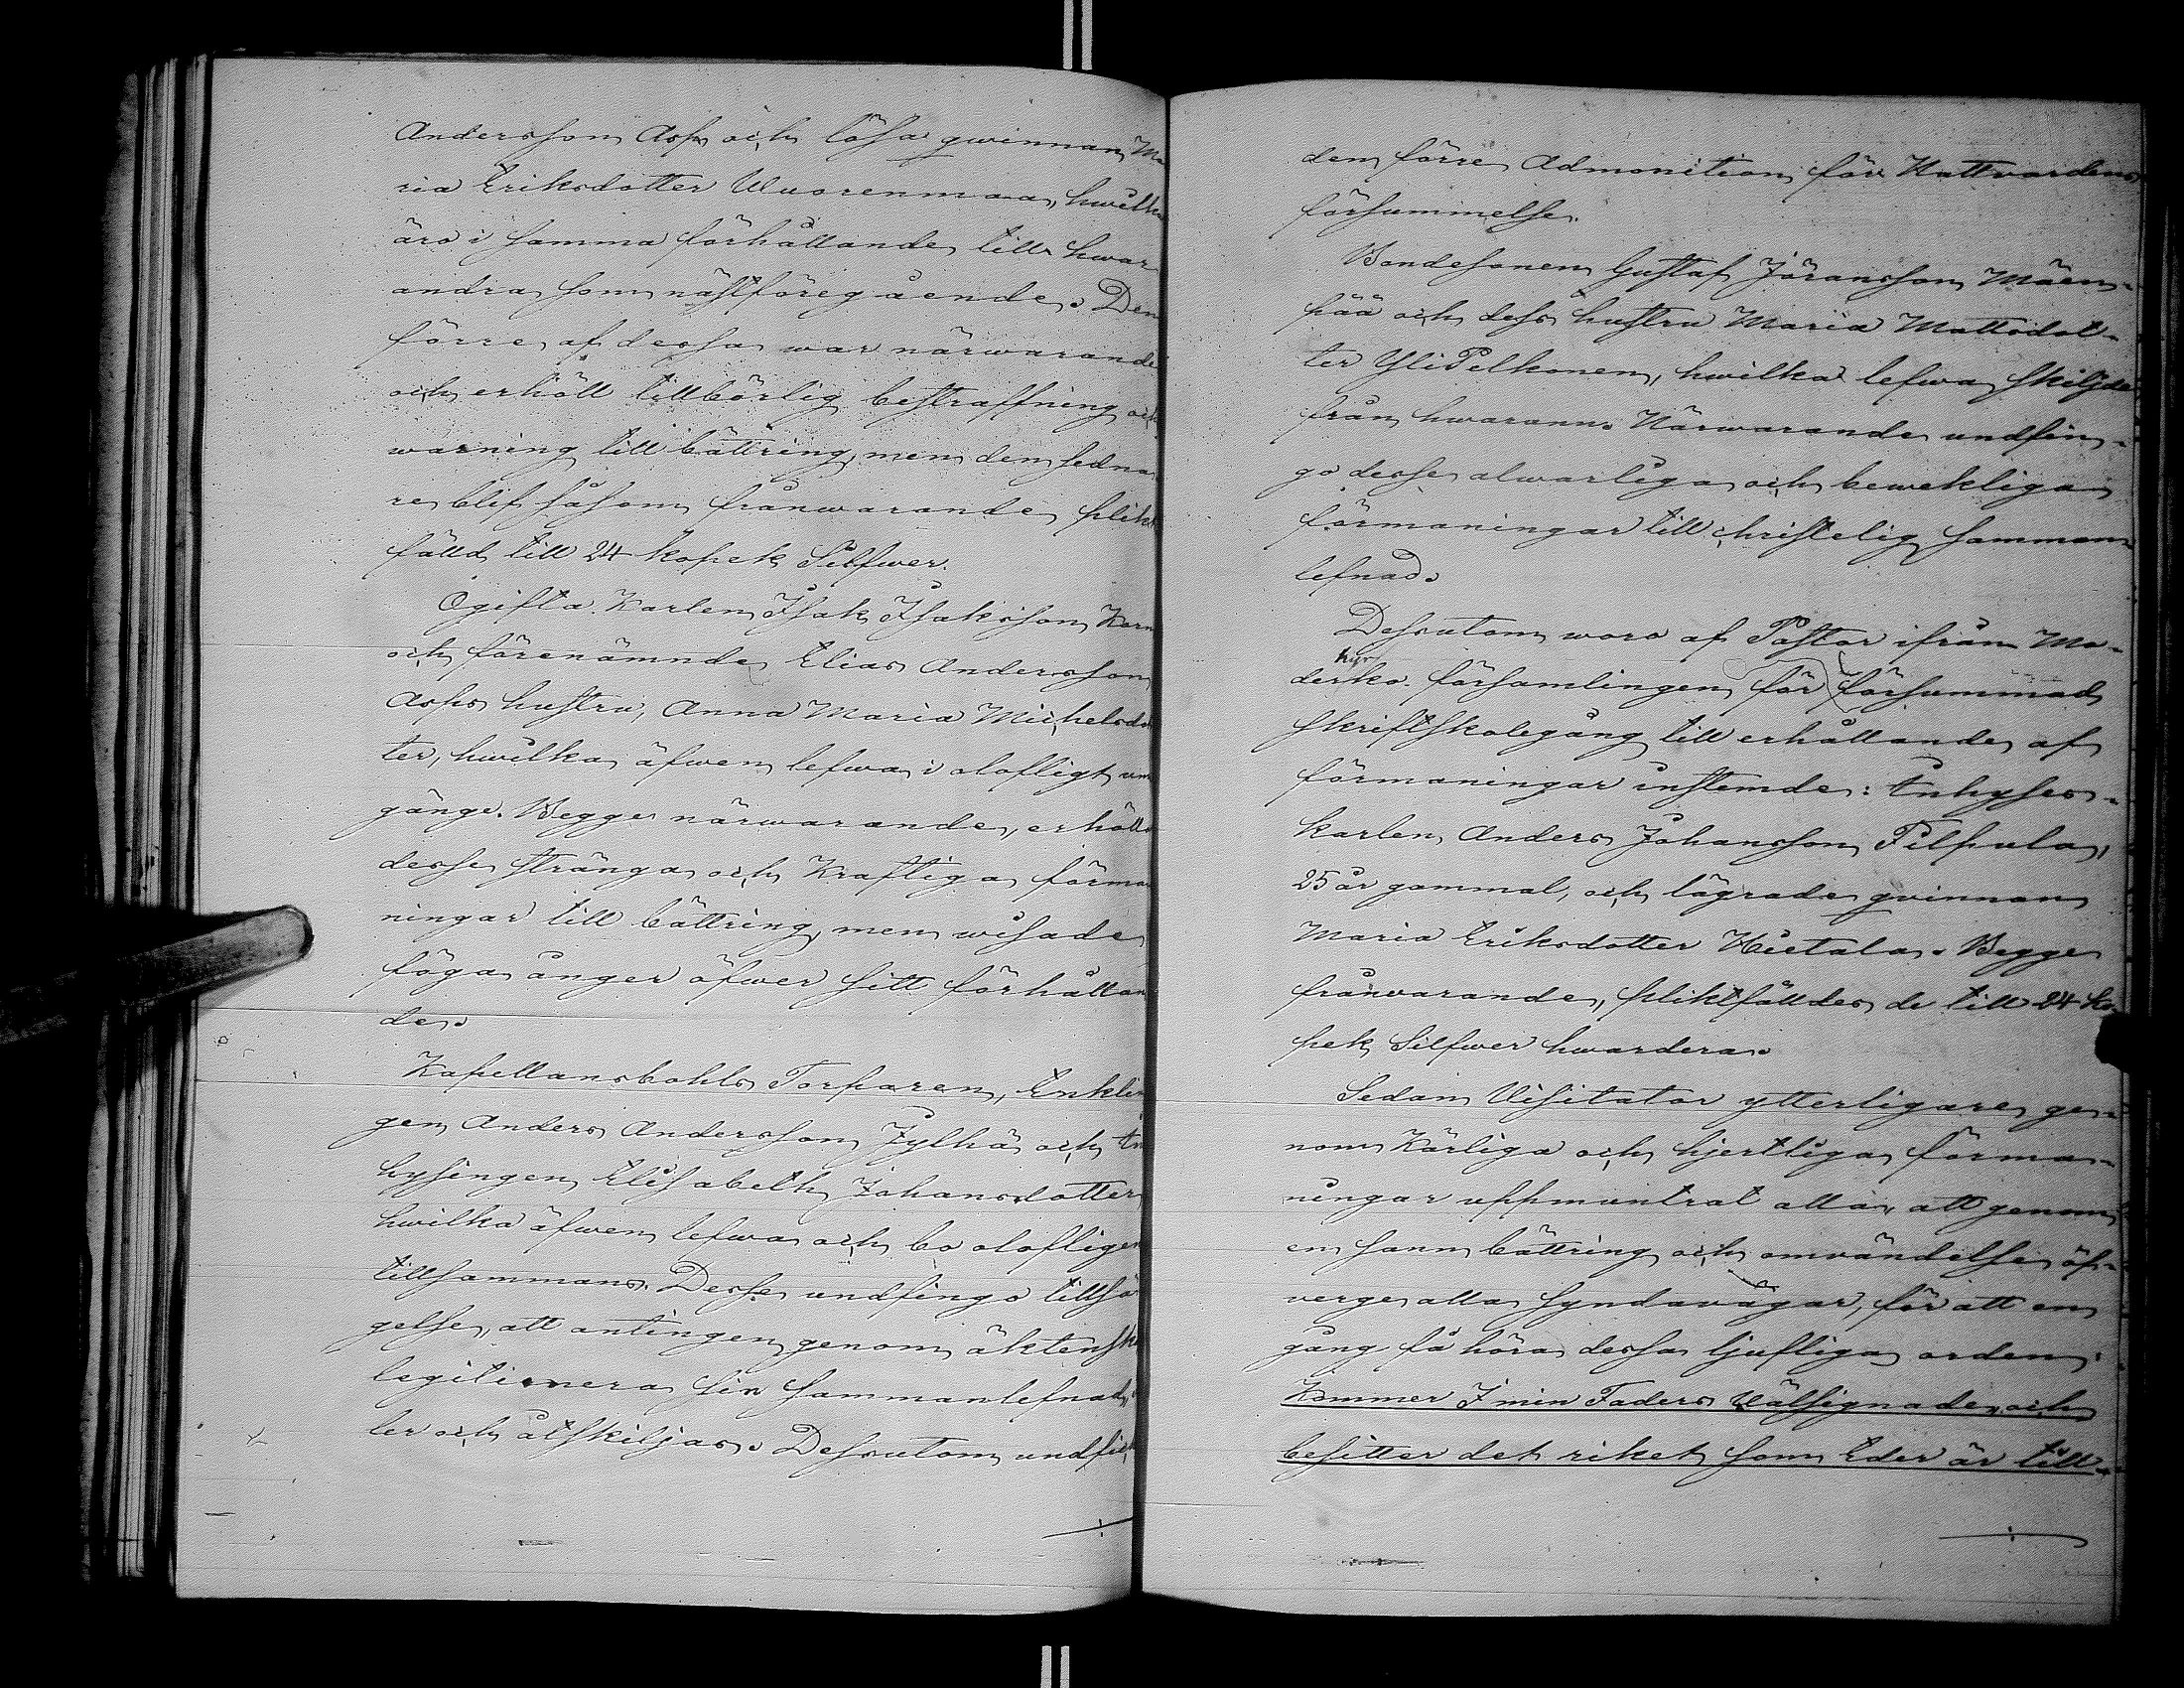 Andersson Asp och lösa qwinnan Ma
ria Eriksdotter Wuorenmaa, hwilka
äro i samma förhållande till hwar
andra som nästföregående. Den
förre af dessa war närwarande
och erhöll tillbörlig bestraffning och
warning till bättring, men den sedna
re blif såsom frånwarande plikt
fälld till 24 kopek Silfwer.
Ogifta Karlen Isak Isaksson Korn
och förenämnde Elias Andersson
Asps hustru, Anna Maria Michelsdot
ter, hwilka äfwen lefwa i olofligt um
gänge. Begge närwarande, erhöllo
desse stränga och Kraftiga förma
ningar till bättring, men wisade
föga ånger öfwer sitt förhållan
de.
Kapellansbohls Torparen, Enklin
gen Anders Andersson Jylhä och In
hysingen Elisabeth Johansdotter
hwilka äfwen lefwa och bo olofligen
tillsammans. Desse undfingo tillsä
gelse, att antingen genom äktenska
legitimera sin sammanlefnad, 
ler och åtskiljas. Dessutom undfick
den förre Admonition för Nattvardens
försummelse.
Bondesonen Gustaf Jöransson Mäen-
pää och dess hustru Maria Mattsdot-
ter YliPelkonen, hwilka lefwa skiljde
från hwarann. Närwarande undfin-
go desse alwarliga och bewekliga
förmaningar till christelig samman
lefnad.
Dessutom woro af Pastor ifrån Mo-
derkyrko församlingen för försummad
skriftskolegång till erhållande af
förmaningar instemde: Inhyses-
karlen Anders Johansson Pilpula,
25 år gammal, och lägrade qvinnan
Maria Eriksdotter Hietala. Begge
frånvarande, pliktfälldes de till 24 ko
pek Silfwer hwardera.
Sedan Visitator ytterligare ge-
nom Kärliga och hjertliga förma-
ningar uppmuntrat alla, att genom
en sann bättring och omvändelse öf-
verge alla syndavägar, för att en
gång få höra dessa ljufliga orden:
Kommer I min Faders Välsignade, och
besitter det riket som Eder är till-